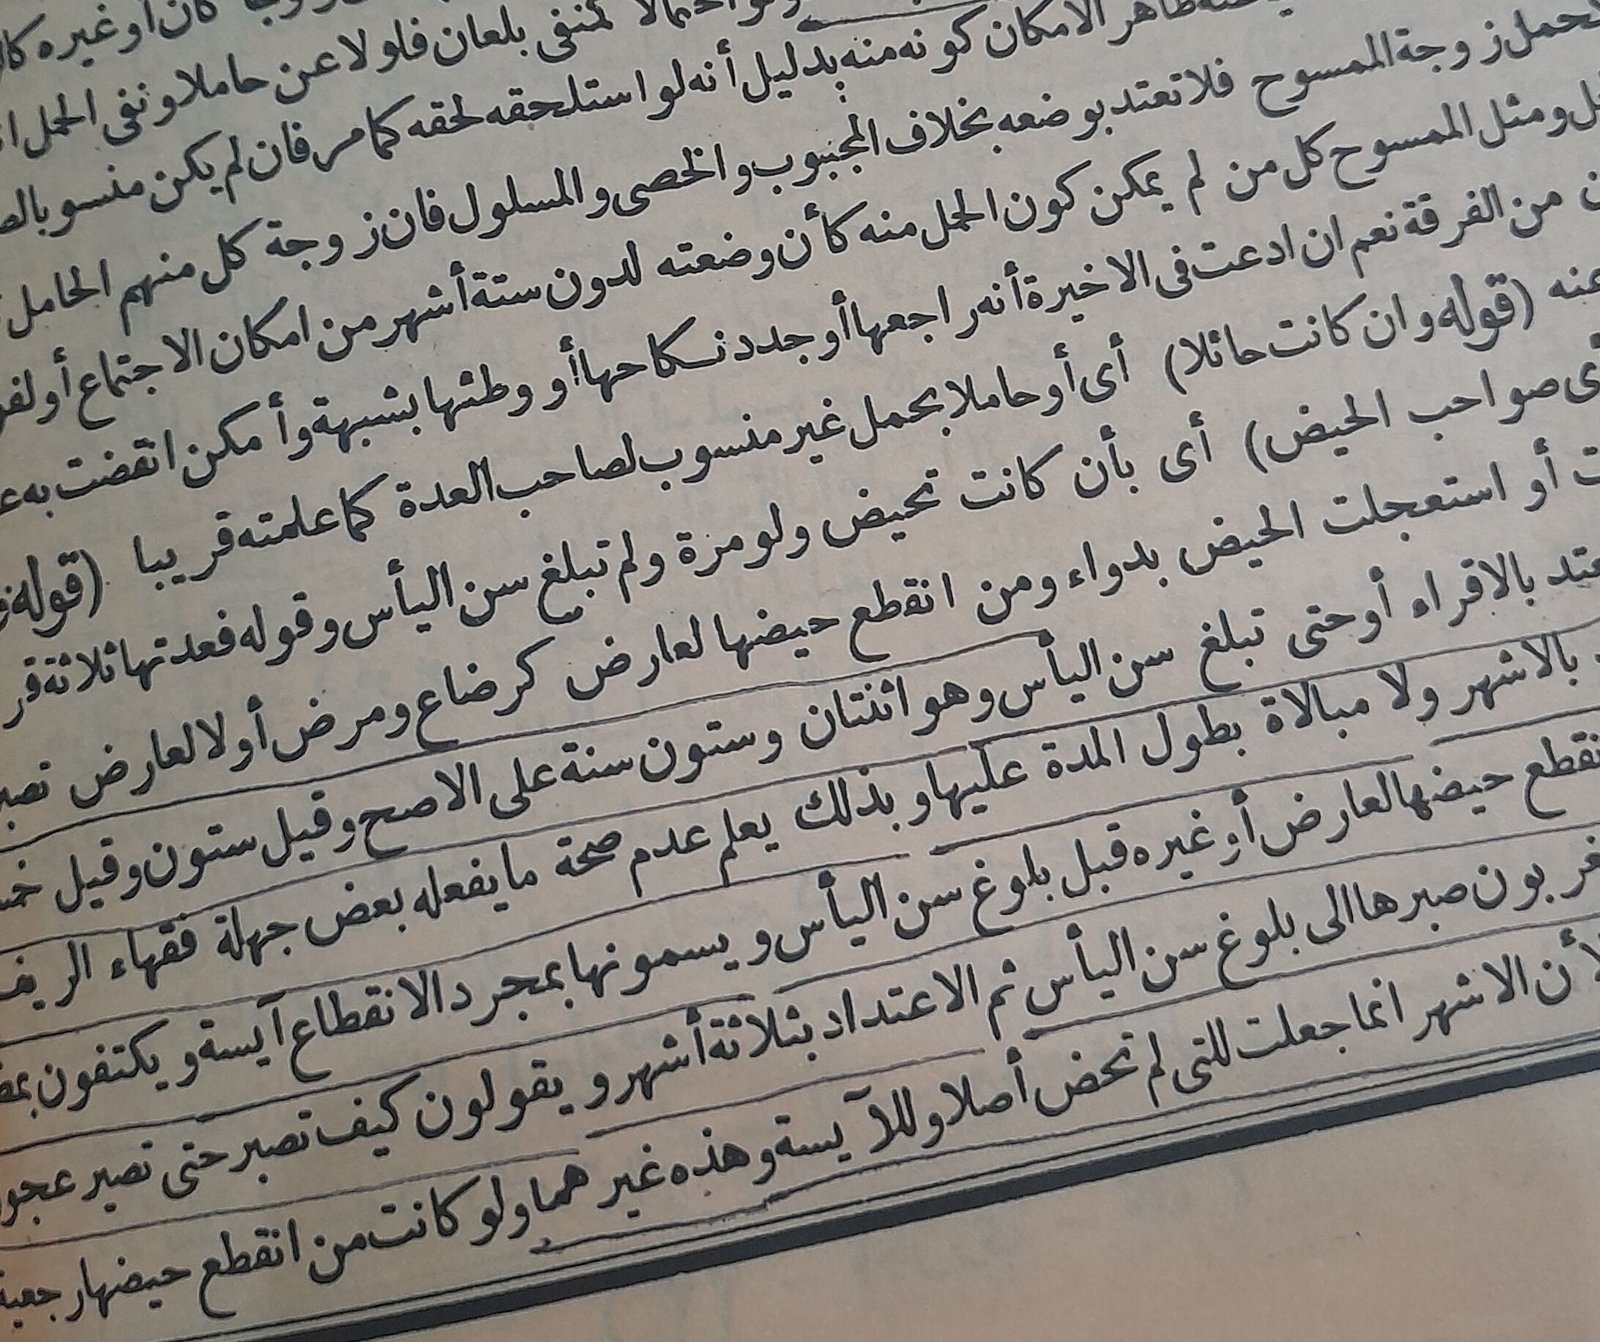 كان أو غيره
احتمالا كمنفى بلعان فلو لاعن حاملا ونفى الحمل
ظاهر الامكان كونه منه بدليل أنه لو استلحقه لحقه كما مر فان لم يكن منسوبا
زوجة الممسوح فلا تعتد بوضعه بخلاف المجبوب والخصى والمسلول فان زوجة كل منهم الحامل
ومثل الممسوح كل من لم يمكن كون الحمل منه كأن وضعته لدون ستة أشهر من امكان الاجتماع أو
من الفرقة نعم ان ادعت فى الاخيرة أنه راجعها أو جدد نكاحها أو وطئها بشبهة وأمكن انقضت به
عنه (قوله وان كانت حائلا) أى أو حاملا بحمل غير منسوب لصاحب العدة كما علمته قريبا (قوله
صواحب الحيض) أى بأن كانت تحيض ولو مرة ولم تبلغ سن اليأس وقوله فعدتها ثلاثة
أو استعجلت الحيض بدواء ومن انقطع حيضها لعارض كرضاع ومرض أو لا لعارض
بالاقراء أو حتى تبلغ سن اليأس وهو اثنتان وستون سنة على الاصح وقيل ستون وقيل
بالاشهر ولا مبالاة بطول المدة عليها وبذلك يعلم عدم صحة ما يفعله بعض جهلة فقهاء الريف
نقطع حيضها لعارض أو غيره قبل بلوغ سن اليأس ويسمونها بمجرد الانقطاع آيسة ويكتفون
غربون صبرها الى بلوغ سن اليأس ثم الاعتداد بثلاثة أشهر ويقولون كيف تصبر حتى تصير
لأن الاشهر انما جعلت للتى لم تحض أصلا وللآيسة وهذه غير هما ولو كانت من انقطع حيضها رجعية